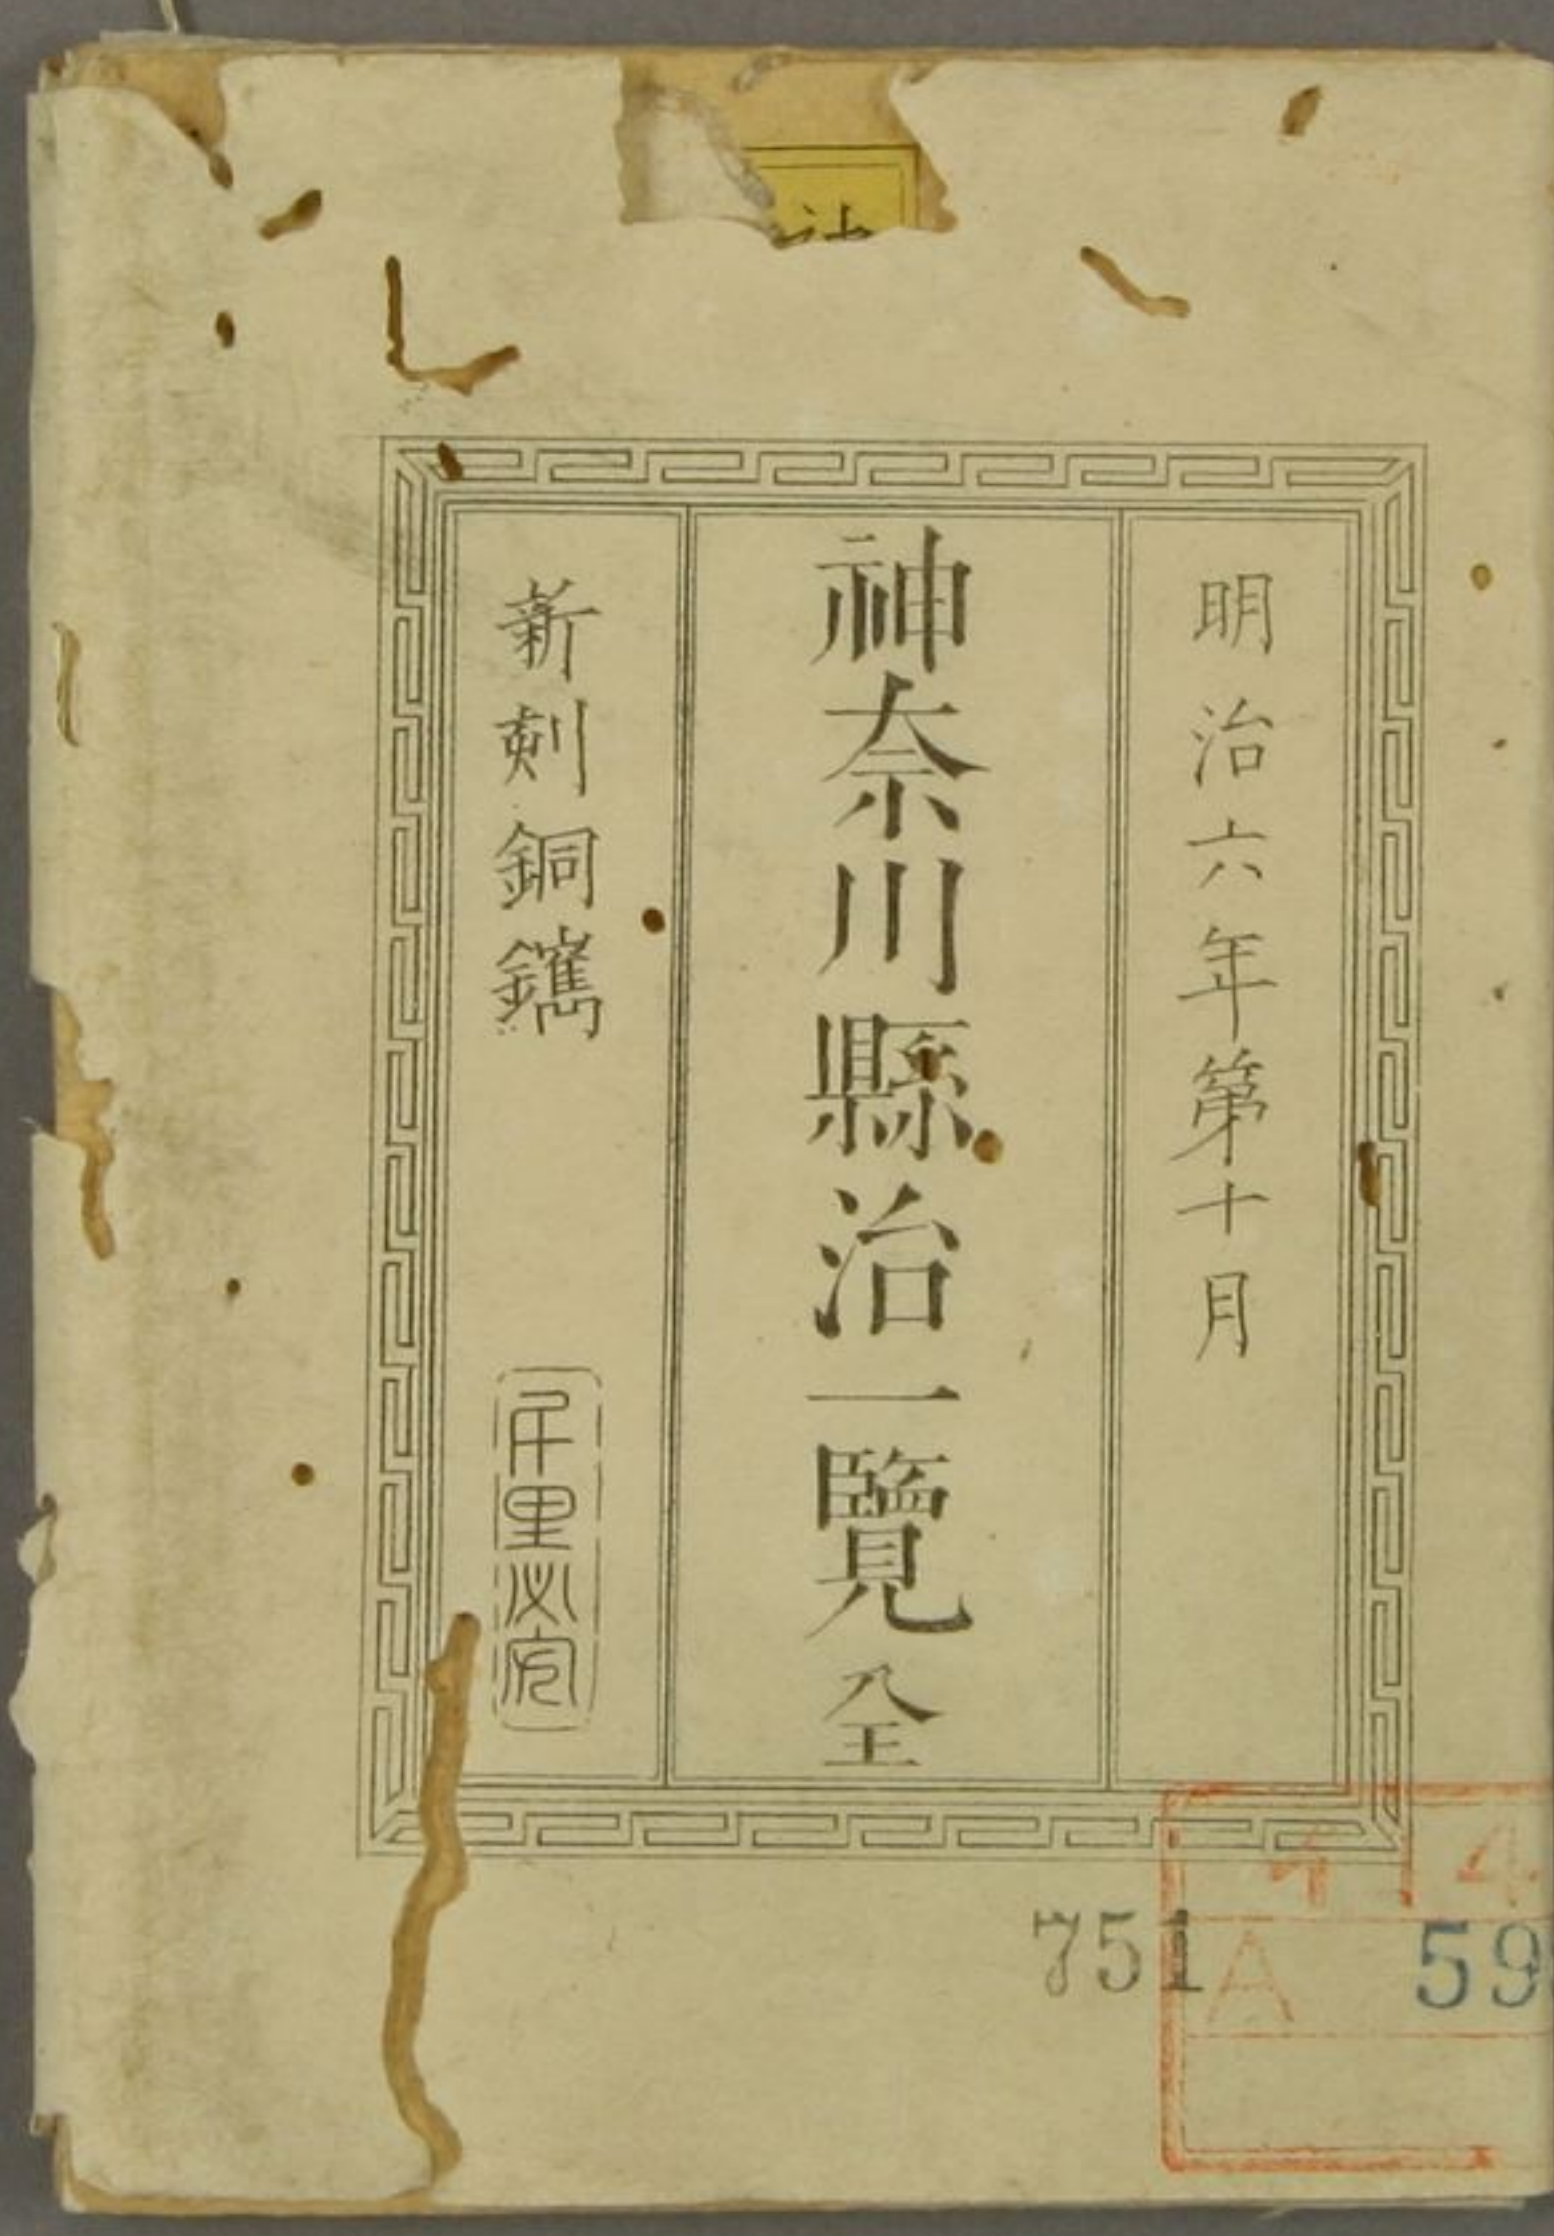 明治六年第十月
神奈川縣治一覽 全
新刻銅鐫
千里必究
751
A 59